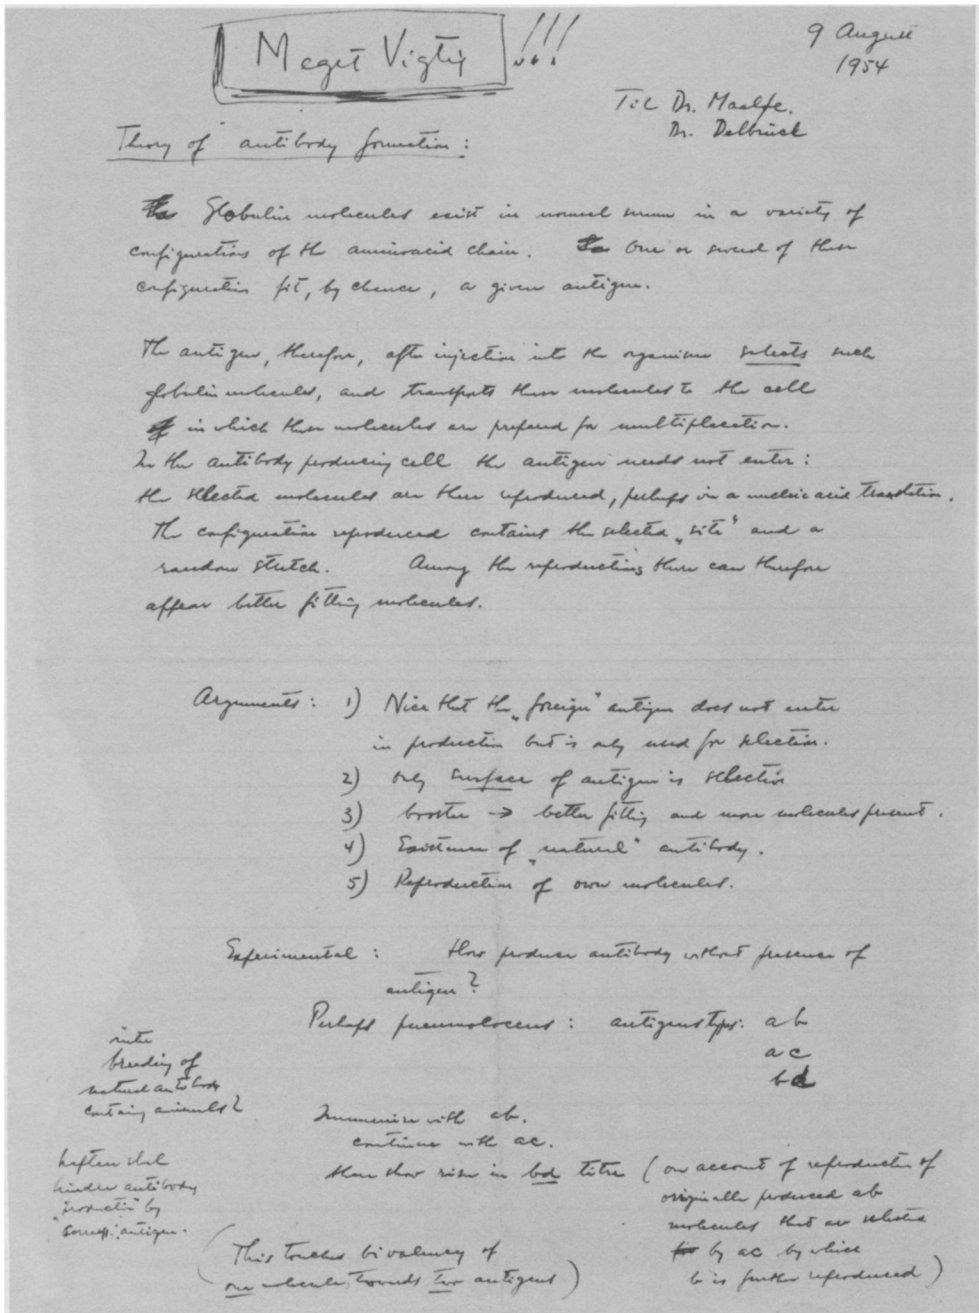 Meget Vigtig !!!
9 August
1954
Til Dr. Maaløe.
Dr. Delbrück
Theory of antibody formation:
Globulin molecules exist in normal serum in a variety of
configurations of the aminoacid chain. One or several of these
configuration fit, by chance, a given antigen.
The antigen, therefore, after injection into the organism selects such
globulin molecules, and transports these molecules to the cell
in which these molecules are prepared for multiplication.
In the antibody producing cell the antigen needs not enter:
the selected molecules are there reproduced, perhaps via a nucleic acid translation.
The configuration reproduced contains the selected „site" and a
random stretch. Among the reproductions there can therefore
appear better fitting molecules.
Arguments: 1) Nice that the „foreign" antigen does not enter
in production but is only used for selection.
2) only surface of antigen is selective
3) booster → better fitting and more molecules present.
4) Existence of „natural" antibody.
5) Reproduction of own molecules.
Experimental: How produce antibody without presence of
antigen?
Perhaps pneumococcus: antigens types: ab
ac
bd
Immunise with ab.
continue with ac.
then show rise in bd titre (on account of reproduction of
originally produced ab
molecules that are selected
by ac by which
b is further reproduced)
(This touches bivalency of
one molecule, towards two antigens)
inter
breeding of
natural antibody
containing animals?
hapten shal
hinder antibody
production by
"corresp." antigen.